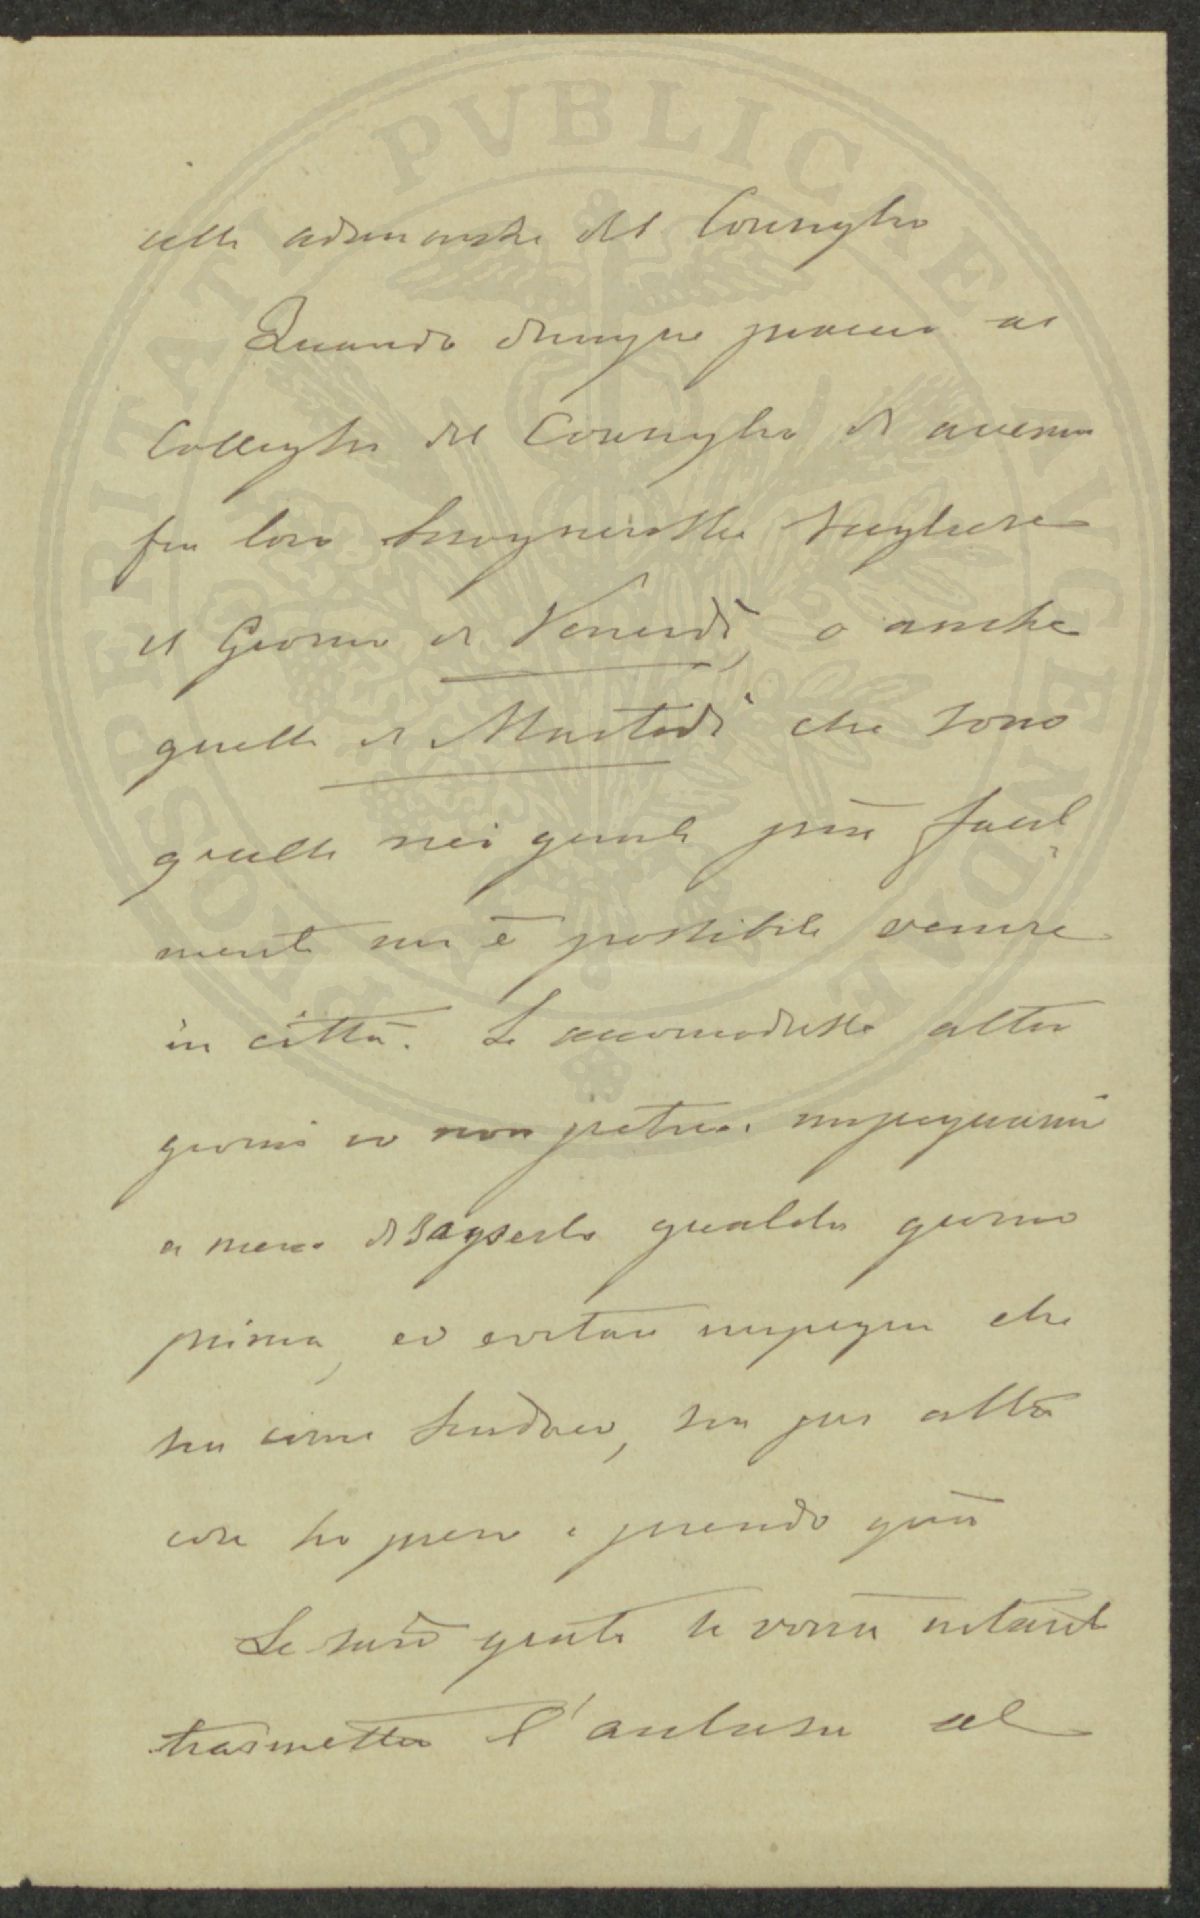 alle adunanze del Consiglio
Quando dunque piaccia ai
Colleghi del Consiglio di avermi
fra loro bisognerebbe scegliere
il Giorno di Venerdì, o anche
quello di Martedì che sono
quelli nei quali più facil
mente mi è possibile venire
in città. Se accomodasse altri
giorni io non potrei impegnarmi
a meno di saperlo qualche giorno
prima, ed evitare impegni che
sia come Sindaco, sia per altre
cose ho preso e prendo qua
Le sarò grato se vorrà
trasmettere l'acclusa al
PROSPERITATI PVBLICAE AVGENDAE